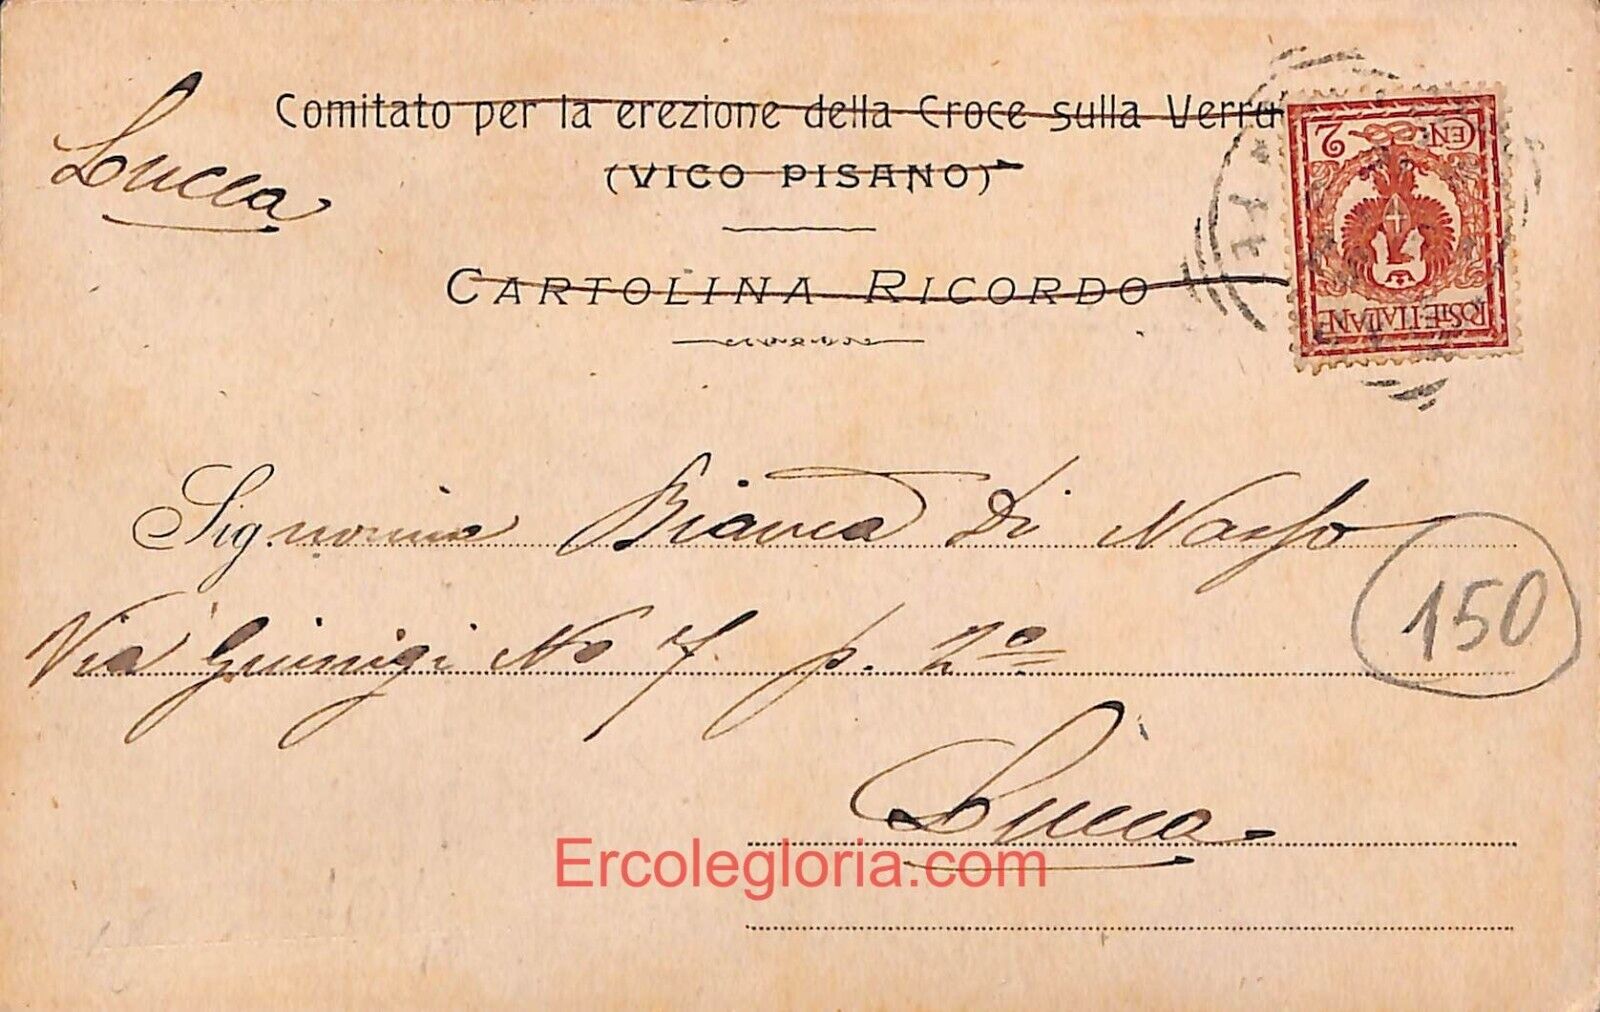 Lucca
Comitato per la erezione della Croce sulla Verru
(VICO PISANO)
CARTOLINA RICORDO
CEN 2
POSTE ITALIANE
Signorina Bianca Di Nasso
Via Guinigi No 7 p. 2º
150
Lucca
Ercolegloria.com